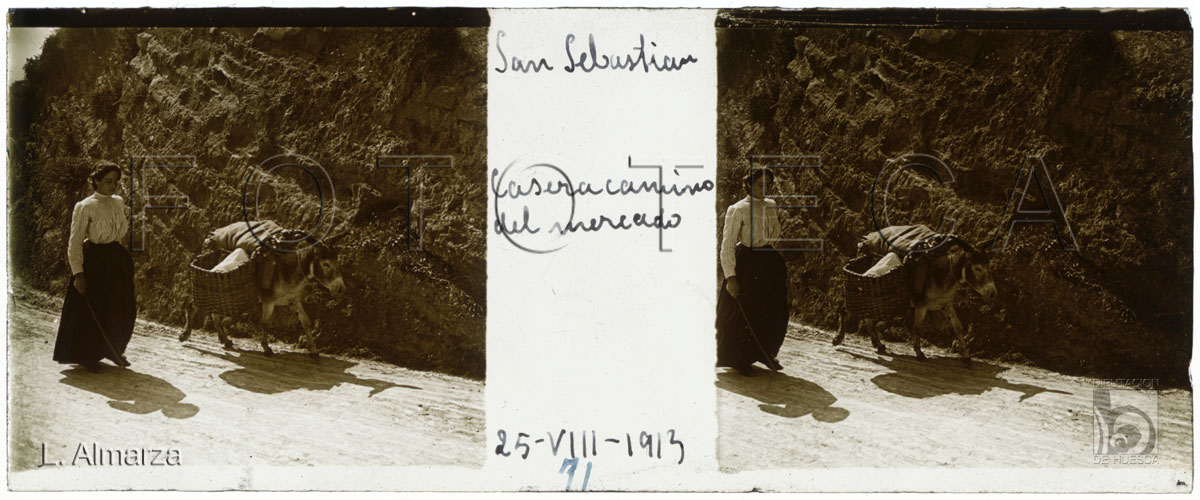 San Sebastian
Casera camino
del mercado
25-VIII-1913
71
FOTOTECA
L. Almarza
DIPUTACION
DE HUESCA